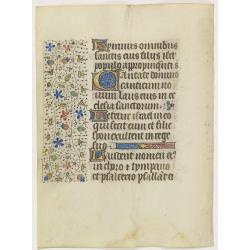 Hymnus omnibus
sanctis eius filiis isrl
populo appropinqu sibi
Cantate domino
canticum no
uum laus eius in ec
clesia sanctorum
Letetur israel in eo
qui fecit eum et filie
syon exultent in rege
suo
Laudent nomen eius
in choro et tympano
et psalterio psallant ei